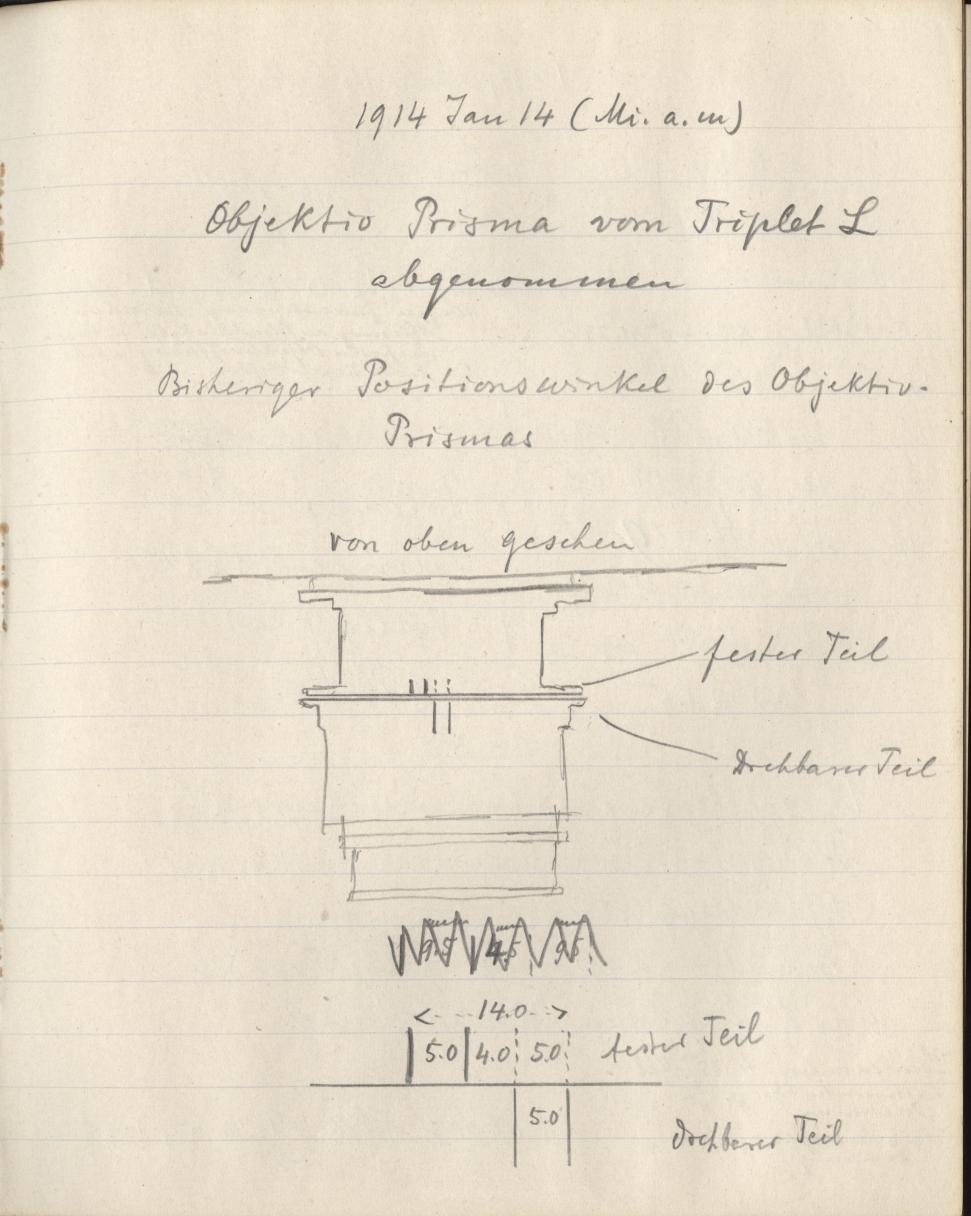 1914 Jan 14 (Mi. a.m)
Objektiv Prisma vom Triplet L
abgenommen
Bisheriger Positionswinkel des Objektiv-
Prismas
von oben gesehen
fester Teil
Drehbarer Teil
14.0
5.0 4.0 5.0 fester Teil
5.0
drehbarer Teil